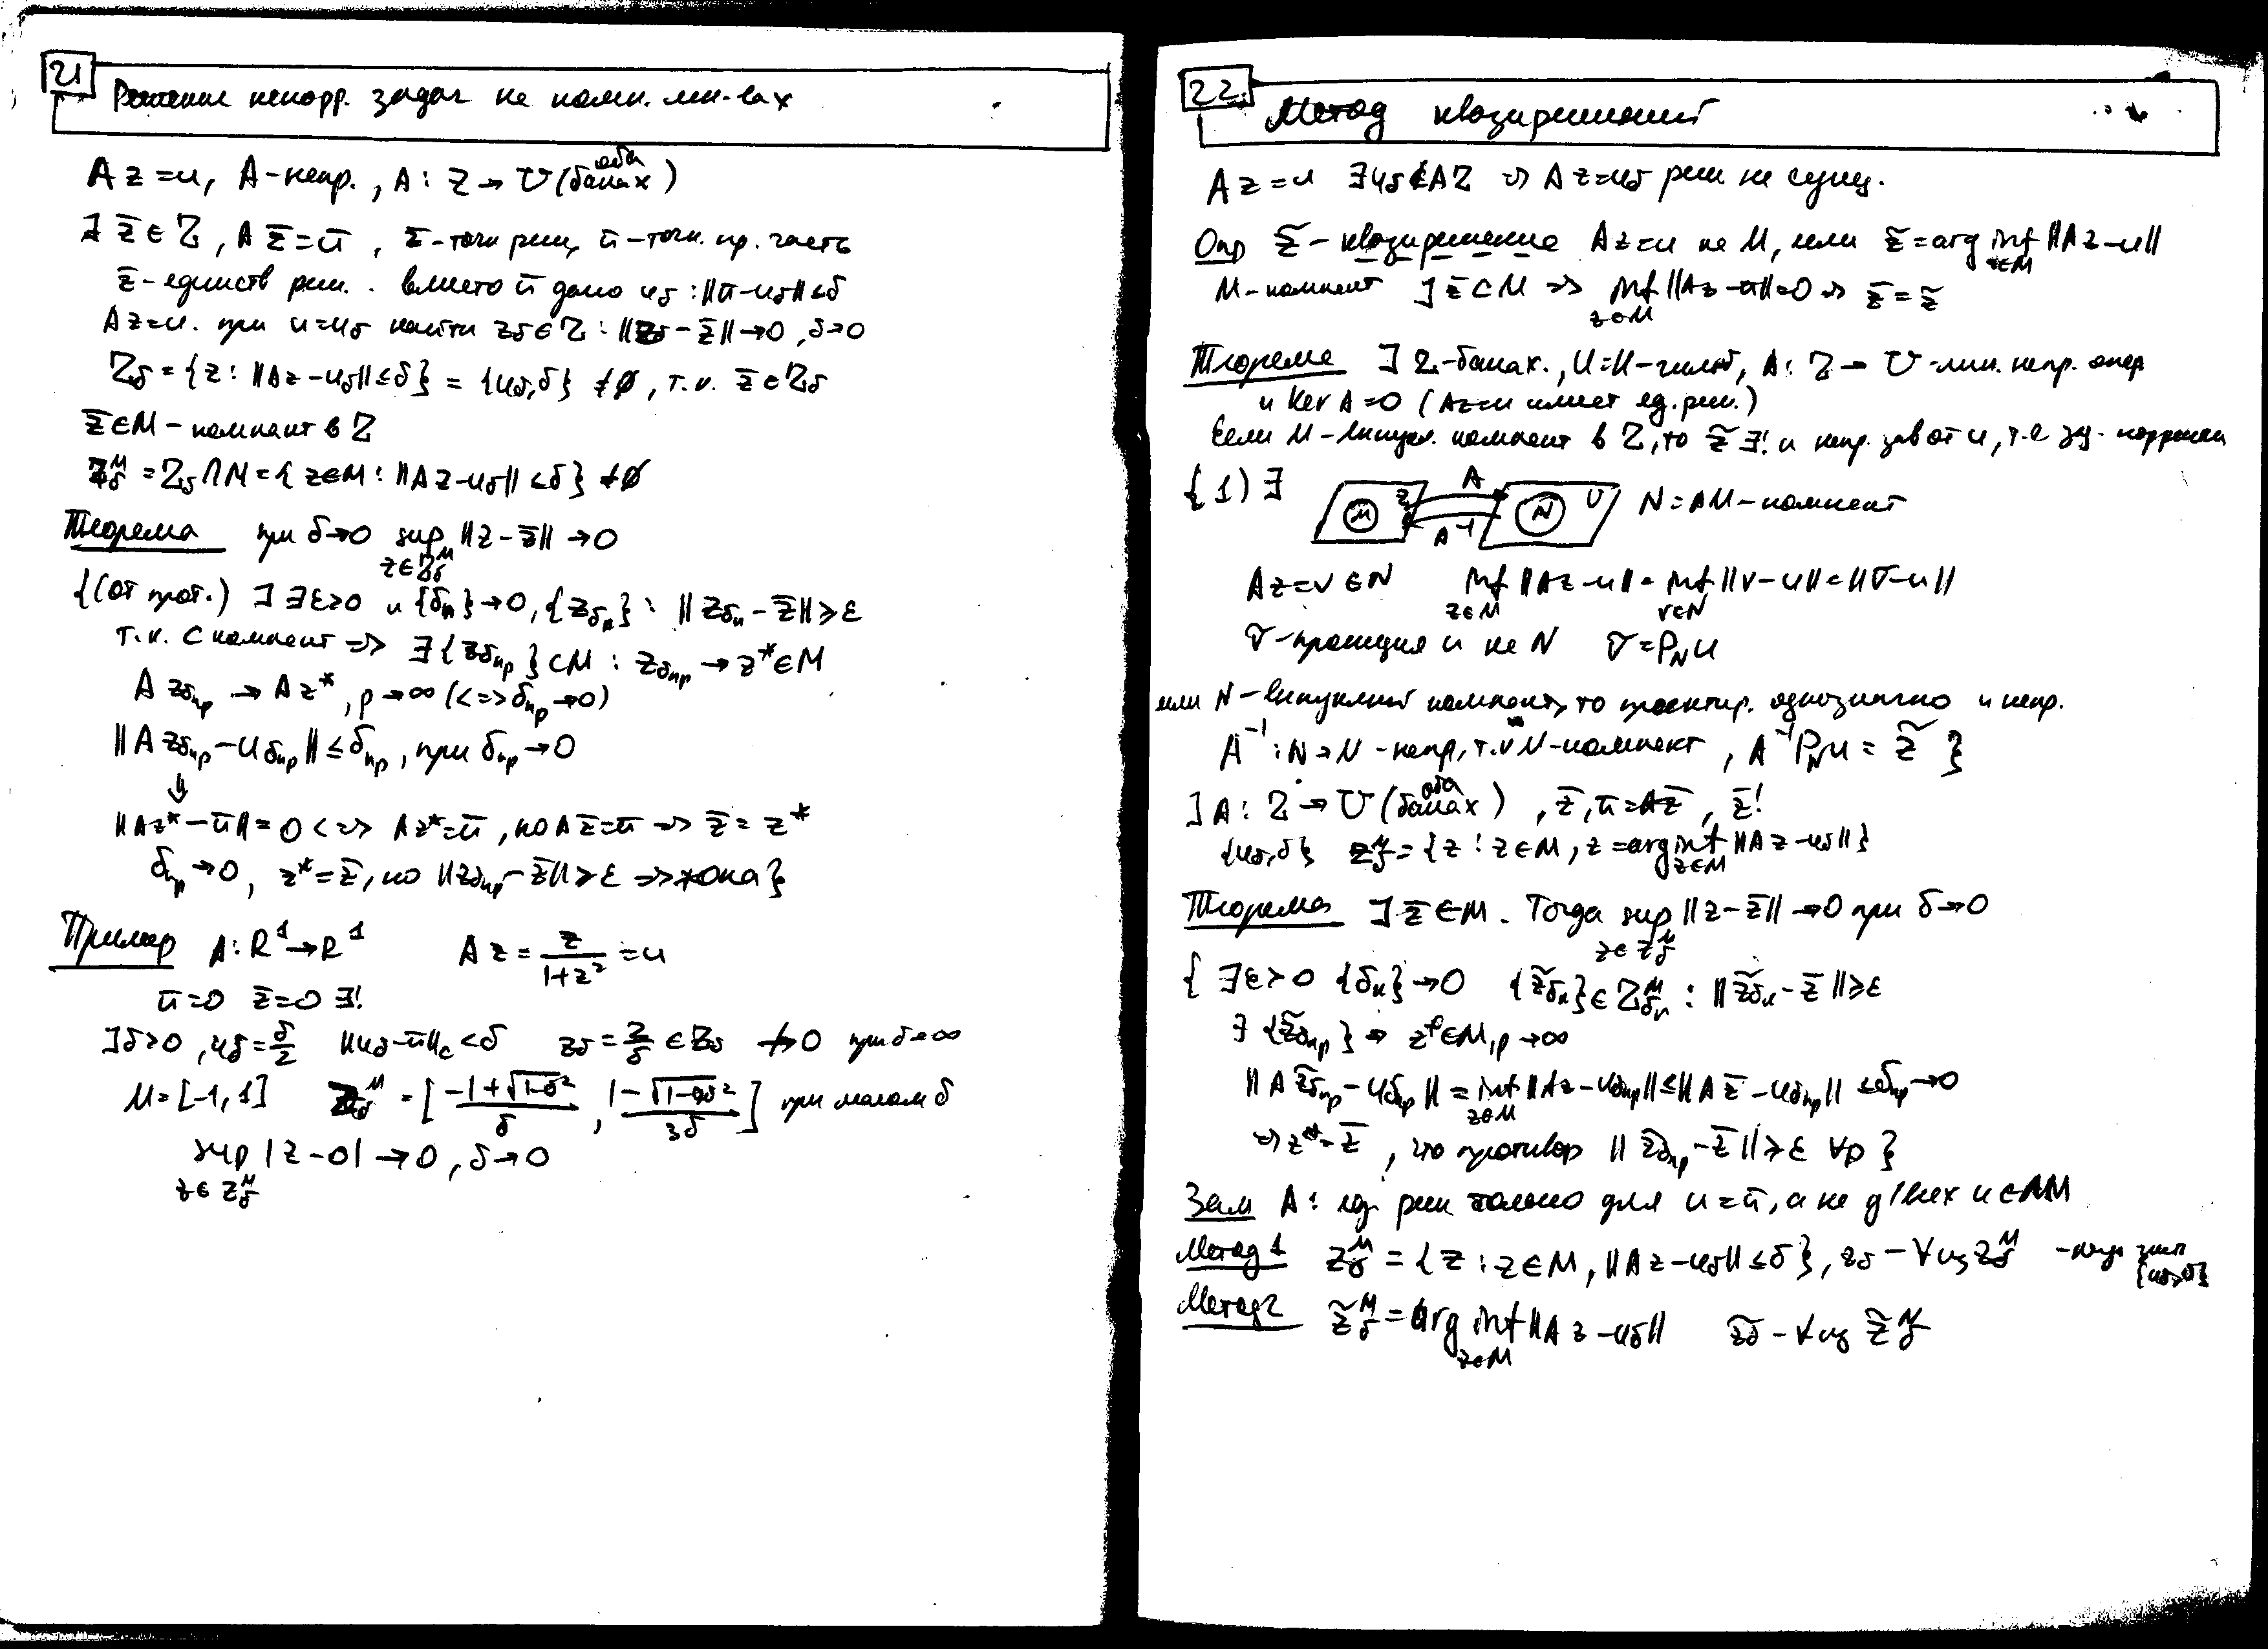 21
Решение некорр. задач на комп. мн-вах
Az=u, A-непр., A: Z → U (оба банах)
∃ z̄ ∈ Z, A z̄ = ū, z̄-точн реш, ū-точн. пр. часть
z̄-единств реш. . вместо ū дано uδ : ||ū-uδ|| ≤ δ
Az=u. при u=uδ найти zδ ∈ Z : ||zδ - z̄|| → 0, δ→0
Zδ = {z : ||Az-uδ|| ≤ δ} = {uδ, δ} ≠ ∅, т.к. z̄ ∈ Zδ
z̄ ∈ M - компакт в Z
Zδᴹ = Zδ ∩ M = {z∈M : ||Az-uδ|| ≤ δ} ≠ ∅
Теорема при δ→0 sup ||z-z̄|| → 0
z∈Zδᴹ
{(от прот.) ] ∃ε>0 и {δn}→0, {zδn} : ||zδn - z̄|| ≥ ε
т.к. C компакт => ∃{zδnp} ⊂ M : zδnp → z* ∈ M
A zδnp → Az*, p→∞ (<=> δnp→0)
||A zδnp - uδnp|| ≤ δnp, при δnp → 0
⇓
||Az* - ū|| = 0 <=> Az* = ū, но Az̄ = ū => z̄ = z*
δnp → 0, z* = z̄, но ||zδnp - z̄|| ≥ ε => жопа}
Пример A: R¹→R¹ Az = z/(1+z²) = u
ū=0 z̄=0 ∃!
] δ>0, uδ = δ/2 ||uδ-ū||c < δ zδ = 2/δ ∈ Zδ ↛ 0 при δ→∞
M = [-1, 1] Zδᴹ = [(-1+√(1-δ²))/δ, (1-√(1-9δ²))/3δ] при малом δ
sup |z-0| → 0, δ→0
z∈Zδᴹ
22.
Метод квазирешений
Az=u ∃uδ ∉ AZ => Az=uδ реш не сущ.
Опр z̃ - квазирешение Az=u на M, если z̃ = arg inf ||Az-u||
z∈M
M-компакт ] z̄ ⊂ M => inf ||Az-ū|| = 0 => z̄ = z̃
z∈M
Теорема ] Z-банах., U=H-гильб, A: Z → U -лин. непр. опер
и Ker A = 0 (Az=u имеет ед. реш.)
Если M-выпукл. компакт в Z, то z̃ ∃! и непр. зав от u, т.е зад. корректн
{1) ∃ M Z A A⁻¹ N U N = AM-компакт
Az = v ∈ N inf ||Az-u|| = inf ||v-u|| = ||v̄-u||
z∈M v∈N
v̄-проекция u на N v̄ = P_N u
если N-выпуклый компакт, то проектир. однозначно и непр.
A⁻¹: N → N -непр, т.к N-компакт, A⁻¹P_N u = z̃ }
] A: Z → U (оба банах), z̄, ū = Az̄, z̄!
{uδ, δ} zδᴹ = {z : z∈M, z = arg inf ||Az-uδ||}
z∈M
Теорема ] z̄ ∈ M. Тогда sup ||z-z̄|| → 0 при δ→0
z∈z̃δᴹ
{ ∃ε>0 {δn}→0 {z̃δn} ∈ Zδnᴹ : ||z̃δn - z̄|| ≥ ε
∃ {z̃δnp} → z* ∈ M, p→∞
||A z̃δnp - uδnp|| = inf ||Az-uδnp|| ≤ ||A z̄ - uδnp|| ≤ δnp → 0
z∈M
=> z* = z̄, что противор ||z̃δnp - z̄|| ≥ ε ∀p }
Зам A: ед. реш только для u=ū, а не д/всех u∈AM
Метод 1 Zδᴹ = {z : z∈M, ||Az-uδ|| ≤ δ}, zδ - ∀ из Zδᴹ
Метод 2 z̃δᴹ = arg inf ||Az-uδ|| z̃δ - ∀ из z̃δᴹ
z∈M